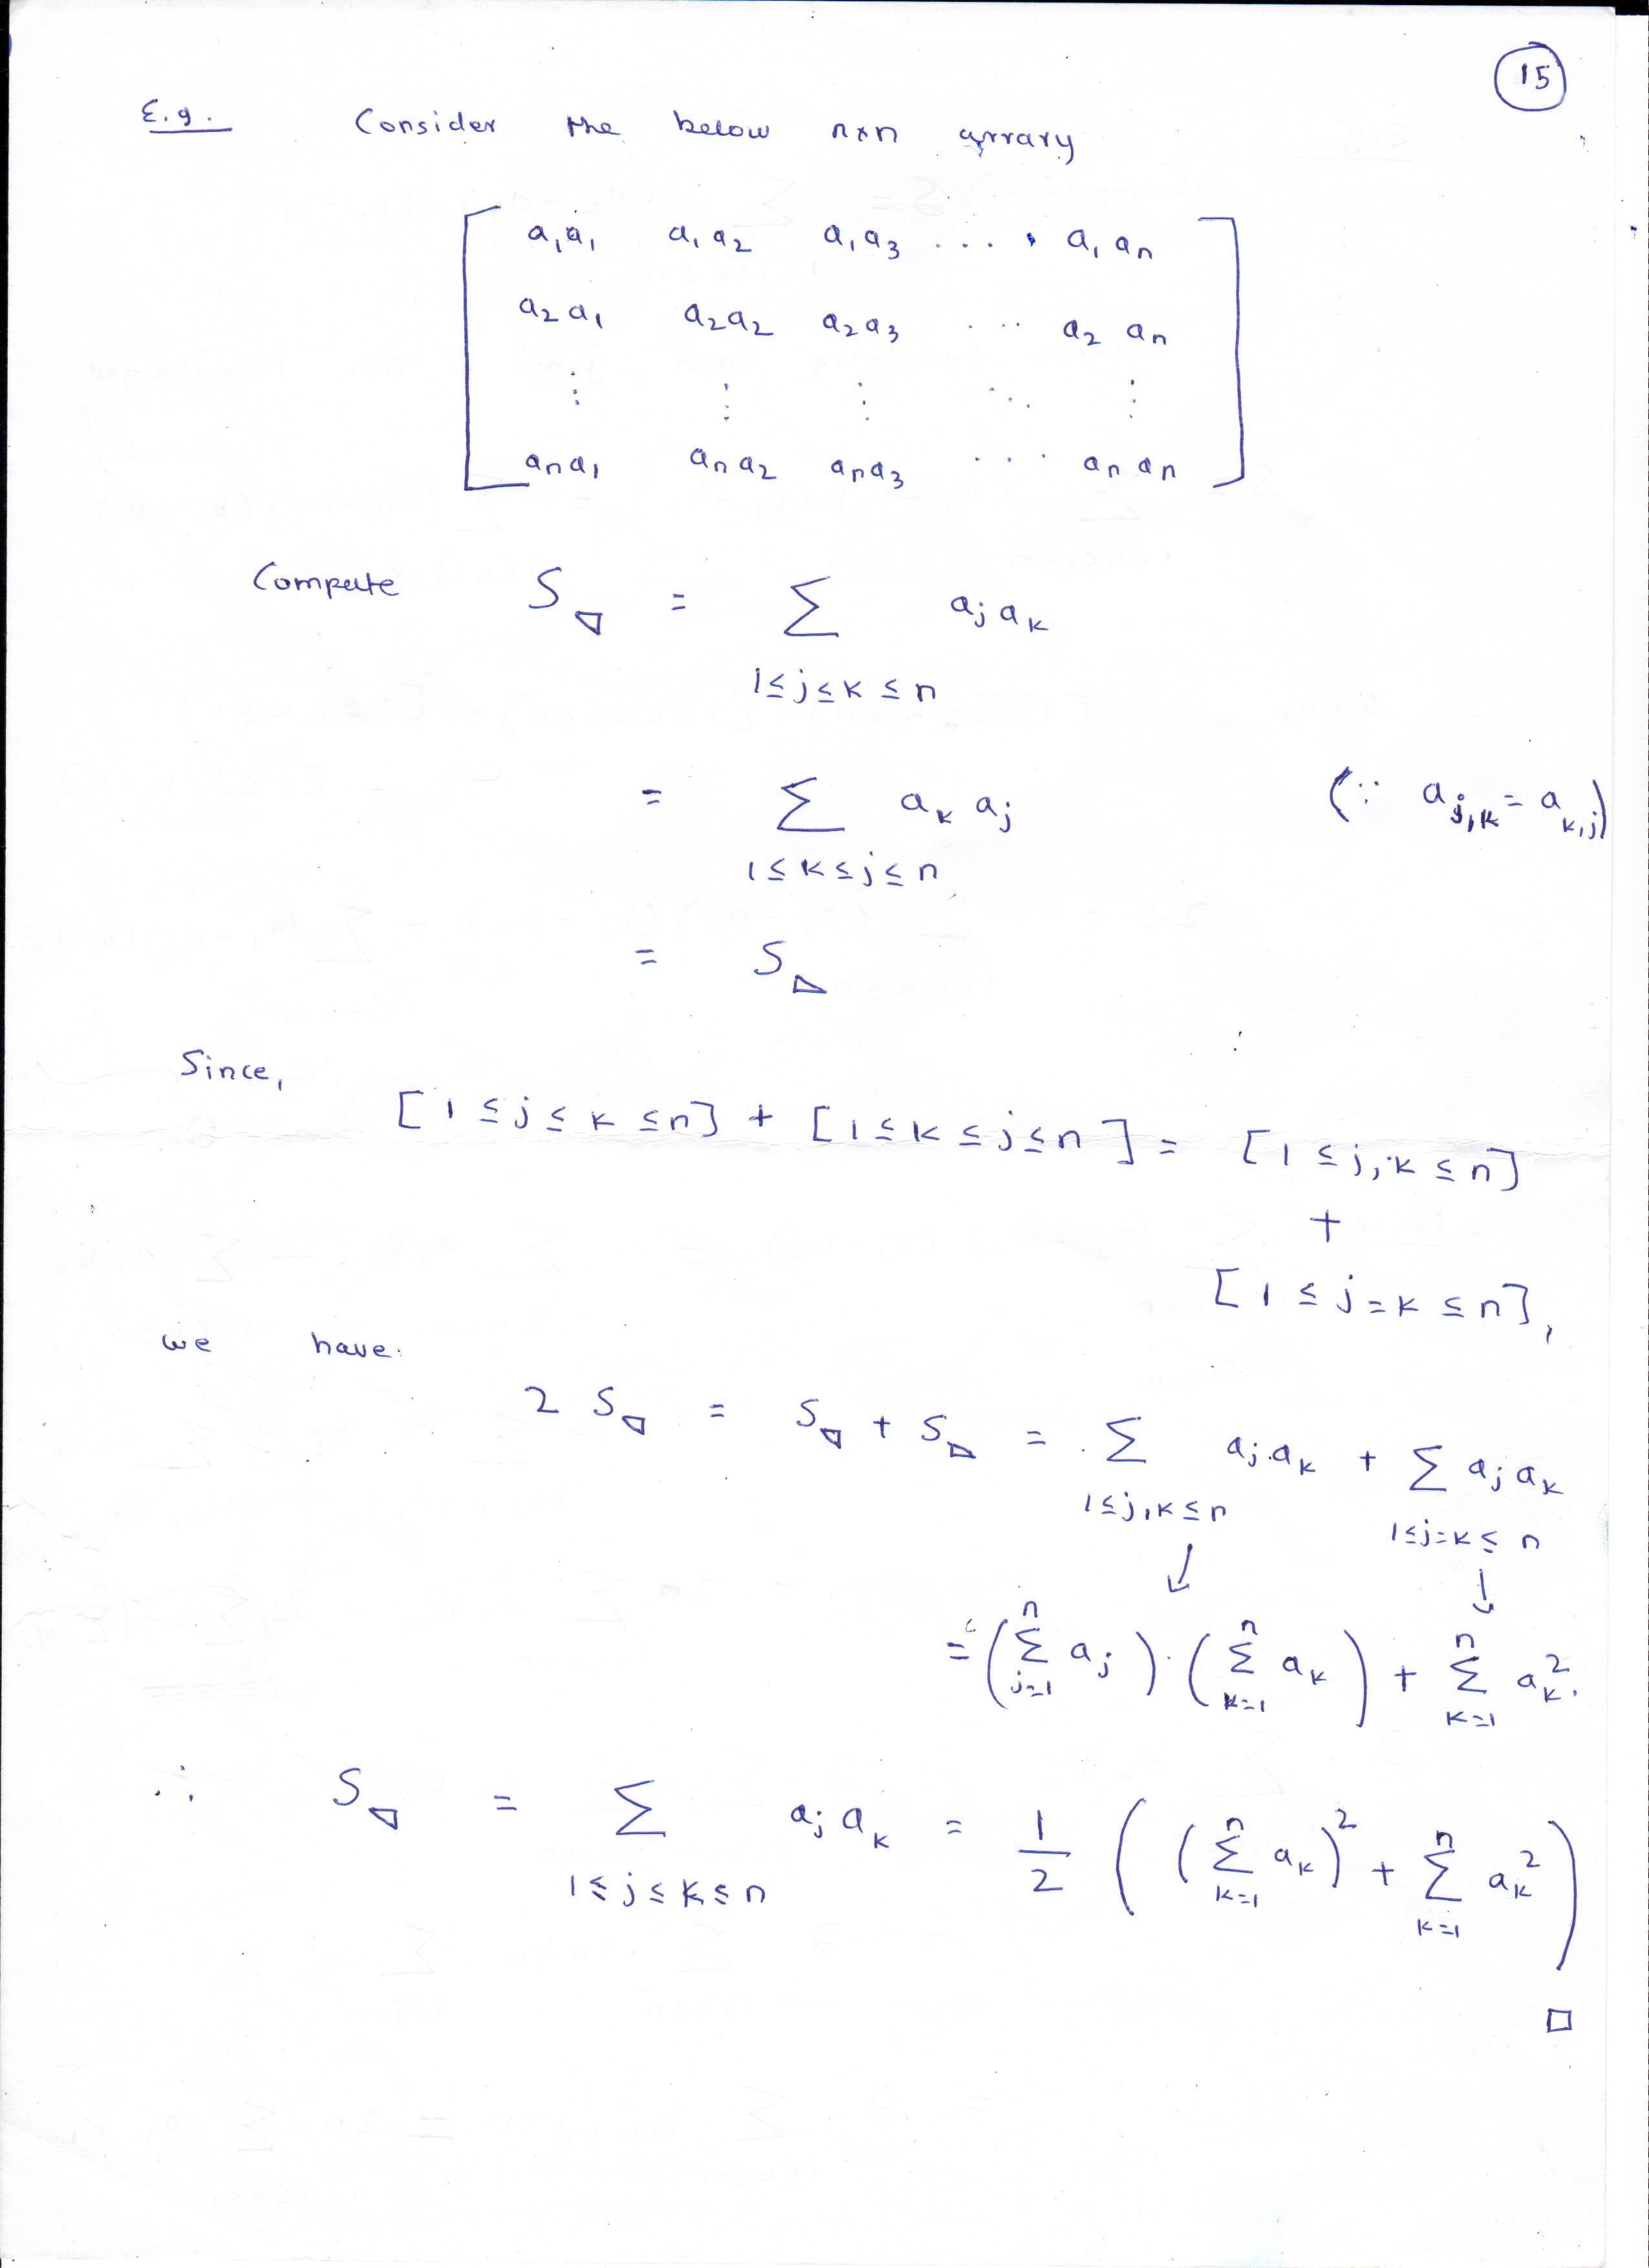 15
E.g. Consider the below n×n arrary
a₁a₁ a₁a₂ a₁a₃ .... a₁aₙ
a₂a₁ a₂a₂ a₂a₃ ... a₂aₙ
⋮ ⋮ ⋮ ⋱ ⋮
aₙa₁ aₙa₂ aₙa₃ ... aₙaₙ
Compute S_◹ = Σ_{1≤j≤k≤n} a_j a_k
= Σ_{1≤k≤j≤n} a_k a_j (∵ a_{j,k} = a_{k,j})
= S_◺
Since,
[1≤j≤k≤n] + [1≤k≤j≤n] = [1≤j,k≤n]
+
[1≤j=k≤n],
we have.
2 S_◹ = S_◹ + S_◺ = Σ_{1≤j,k≤n} a_j.a_k + Σ_{1≤j=k≤n} a_j a_k
↓ ↓
= (Σ_{j=1}^{n} a_j).(Σ_{k=1}^{n} a_k) + Σ_{k=1}^{n} a_k².
∴ S_◹ = Σ_{1≤j≤k≤n} a_j a_k = 1/2 ((Σ_{k=1}^{n} a_k)² + Σ_{k=1}^{n} a_k²)
□